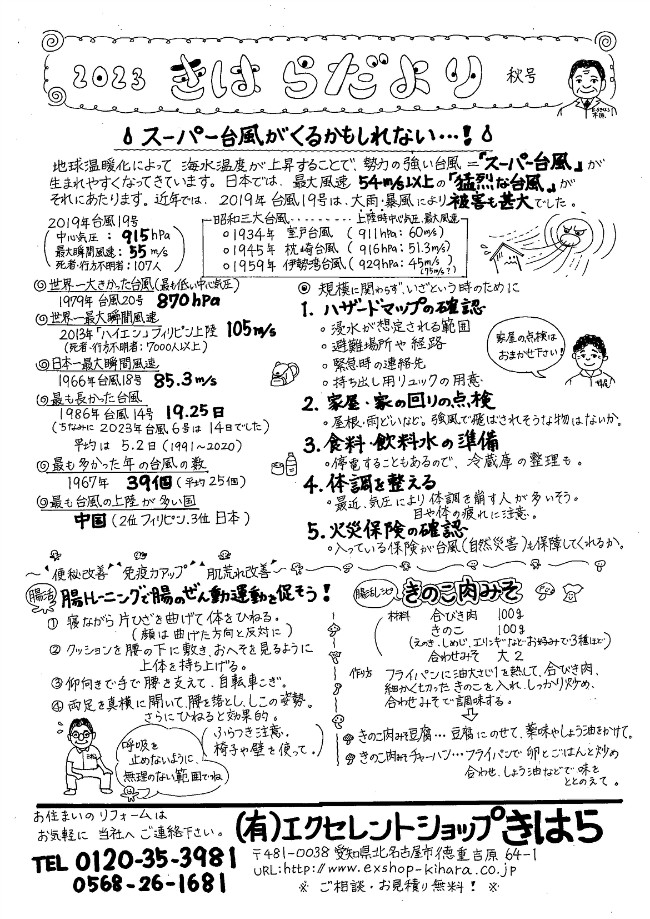 2023 きはらだより 秋号
スーパー台風がくるかもしれない…!
地球温暖化によって 海水温度が上昇することで、勢力の強い台風=「スーパー台風」が
生まれやすくなってきています。日本では、最大風速 54m/s以上の「猛烈な台風」が
それにあたります。近年では、2019年台風19号は、大雨・暴風により被害も甚大でした。
2019年台風19号
中心気圧 : 915hPa
最大瞬間風速 : 55m/s
死者・行方不明者 : 107人
昭和三大台風………上陸時中心気圧、最大風速
○1934年 室戸台風 (911hPa : 60m/s)
○1945年 枕崎台風 (916hPa : 51.3m/s)
○1959年 伊勢湾台風 (929hPa : 45m/s)
(75m/s?)
◎世界一大きかった台風(最も低い中心気圧)
1979年 台風20号 870hPa
◎世界一最大瞬間風速
2013年「ハイエン」フィリピン上陸 105m/s
(死者・行方不明者 : 7000人以上)
◎日本一最大瞬間風速
1966年 台風18号 85.3m/s
◎最も長かった台風
1986年 台風14号 19.25日
(ちなみに 2023年台風6号は 14日でした)
平均は 5.2日 (1991~2020)
◎最も多かった年の台風の数
1967年 39個 (平均25個)
◎最も台風の上陸が多い国
中国 (2位 フィリピン、3位 日本)
◎ 規模に関わらず、いざという時のために
1. ハザードマップの確認
○浸水が想定される範囲
○避難場所や経路
○緊急時の連絡先
○持ち出し用リュックの用意
家屋の点検は
おまかせ下さい!
2. 家屋・家の回りの点検
○屋根・雨どいなど。強風で飛ばされそうな物はないか。
3. 食料・飲料水の準備
○停電することもあるので、冷蔵庫の整理も。
4. 体調を整える
○最近、気圧により体調を崩す人が多いそう。
目や体の疲れに注意。
5. 火災保険の確認
○入っている保険が台風(自然災害)も保障してくれるか。
便秘改善 免疫力アップ 肌荒れ改善
腸活 腸トレーニングで腸のぜん動運動を促そう!
① 寝ながら片ひざを曲げて体をひねる。
(顔は曲げた方向と反対に)
② クッションを腰の下に敷き、おへそを見るように
上体を持ち上げる。
③ 仰向きで手で腰を支えて、自転車こぎ。
④ 両足を真横に開いて、腰を落とし、しこの姿勢。
さらにひねると効果的。
(ふらつき注意。
椅子や壁を使って。)
呼吸を
止めないように、
無理のない範囲でね
腸活レシピ きのこ肉みそ
材料 合びき肉 100g
きのこ 100g
(えのき、しめじ、エリンギなどお好みで3種ほど)
合わせみそ 大2
作り方 フライパンに油大さじ1を熱して、合びき肉、
細かく切ったきのこを入れ、しっかり炒め、
合わせみそで調味する。
きのこ肉みそ豆腐… 豆腐にのせて、薬味やしょう油をかけて。
きのこ肉みそチャーハン…フライパンで卵とごはんと炒め
合わせ、しょう油などで味を
ととのえて。
お住まいのリフォームは
お気軽に 当社へご連絡下さい。
(有)エクセレントショップきはら
TEL 0120-35-3981
0568-26-1681
〒481-0038 愛知県北名古屋市徳重吉原 64-1
URL:http://www.exshop-kihara.co.jp
※ ご相談・お見積り無料! ※